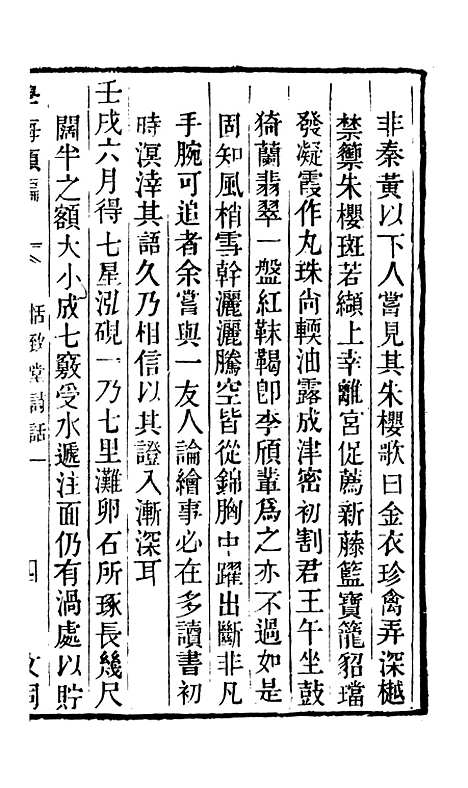 非秦黃以下人嘗見其朱櫻歌曰金衣珍禽弄深樾
禁籞朱櫻斑若纈上幸離宮促薦新藤籃寶籠貂璫
發凝霞作丸珠尚輭油露成津密初割君王午坐鼓
猗蘭翡翠一盤紅靺鞨卽李頎輩爲之亦不過如是
固知風梢雪幹灑灑騰空皆從錦胸中躍出斷非凡
手腕可追者余嘗與一友人論繪事必在多讀書初
時溟涬其語久乃相信以其證入漸深耳
壬戌六月得七星泓硯一乃七里灘卵石所琢長幾尺
闊半之額大小成七竅受水遞注面仍有渦處以貯
學海類編 恬致堂詩話一 四